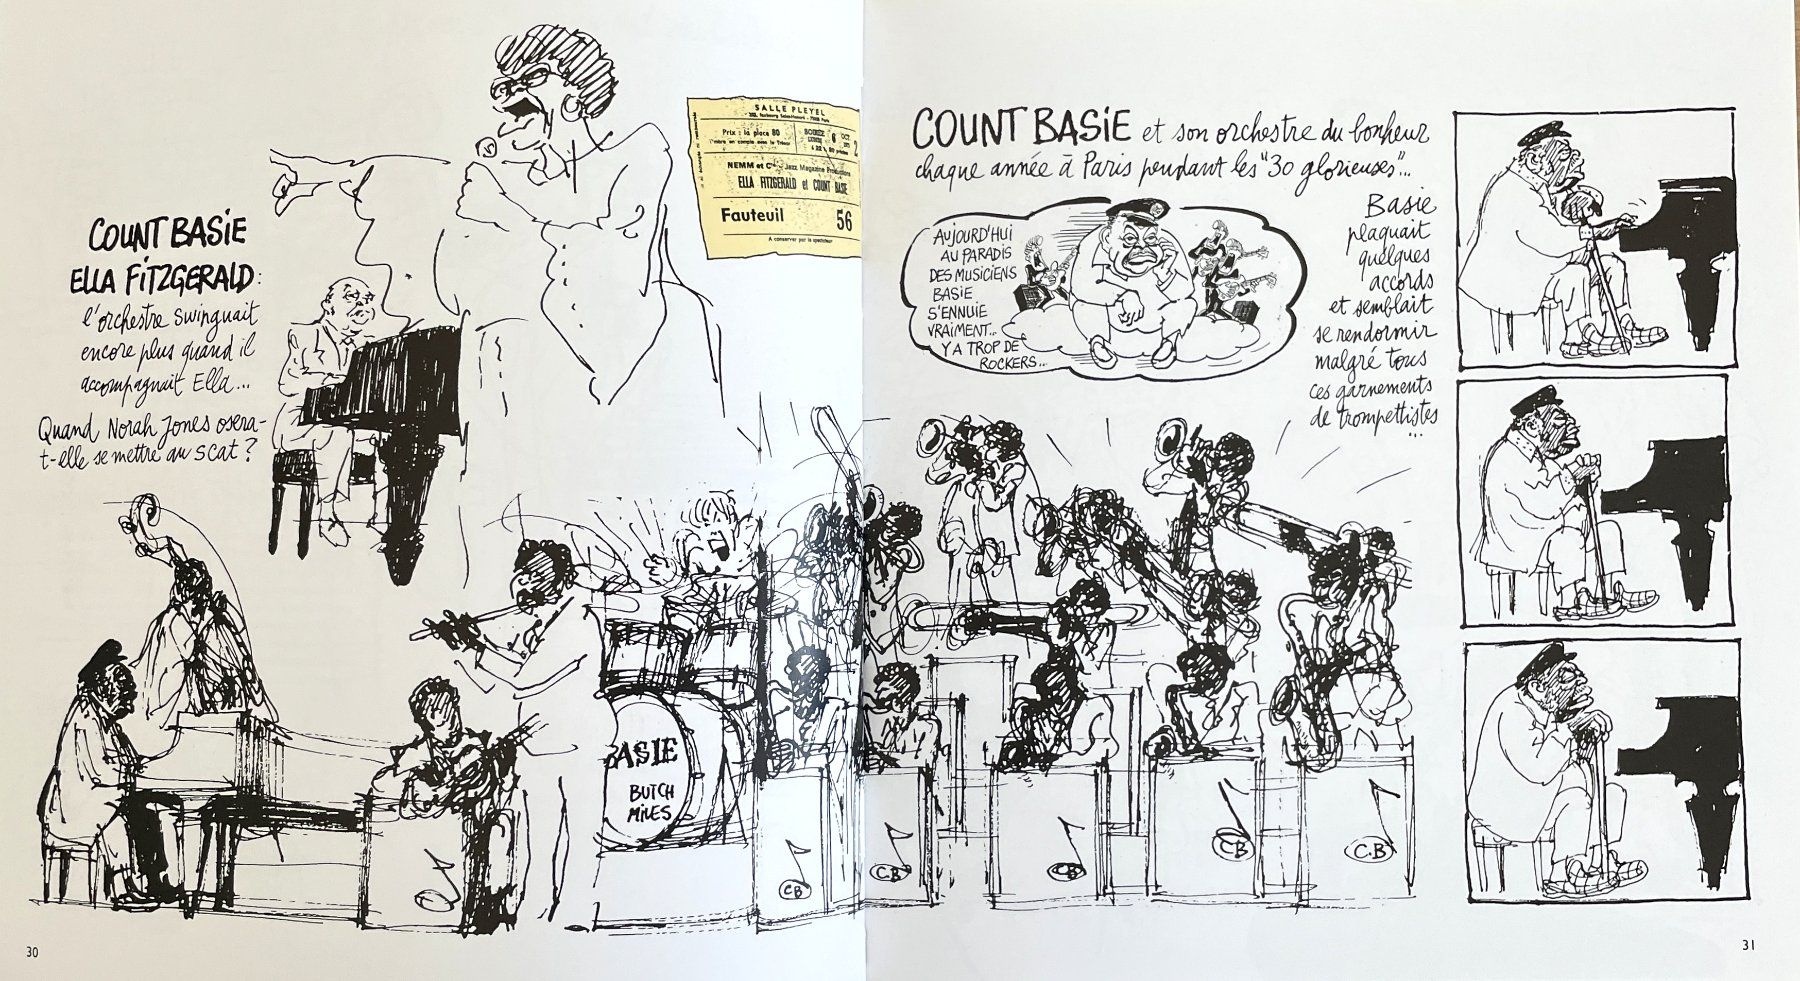 COUNT BASIE
ELLA FITZGERALD:
l'orchestre swinguait
encore plus quand il
accompagnait Ella...
Quand Norah Jones osera-
t-elle se mettre au scat?
SALLE PLEYEL
Prix : la place 80
NEMM et Cie - Jazz Magazine
ELLA FITZGERALD et COUNT BASIE
Fauteuil 56
A conserver par le spectateur
BASIE
BUTCH
MILES
CB
30
COUNT BASIE et son orchestre du bonheur
chaque année à Paris pendant les "30 glorieuses"...
AUJOURD'HUI
AU PARADIS
DES MUSICIENS
BASIE
S'ENNUIE
VRAIMENT...
Y A TROP DE
ROCKERS...
Basie
plaquait
quelques
accords
et semblait
se rendormir
malgré tous
ces garnements
de trompettistes
...
C.B
CB
CB
C.B
31